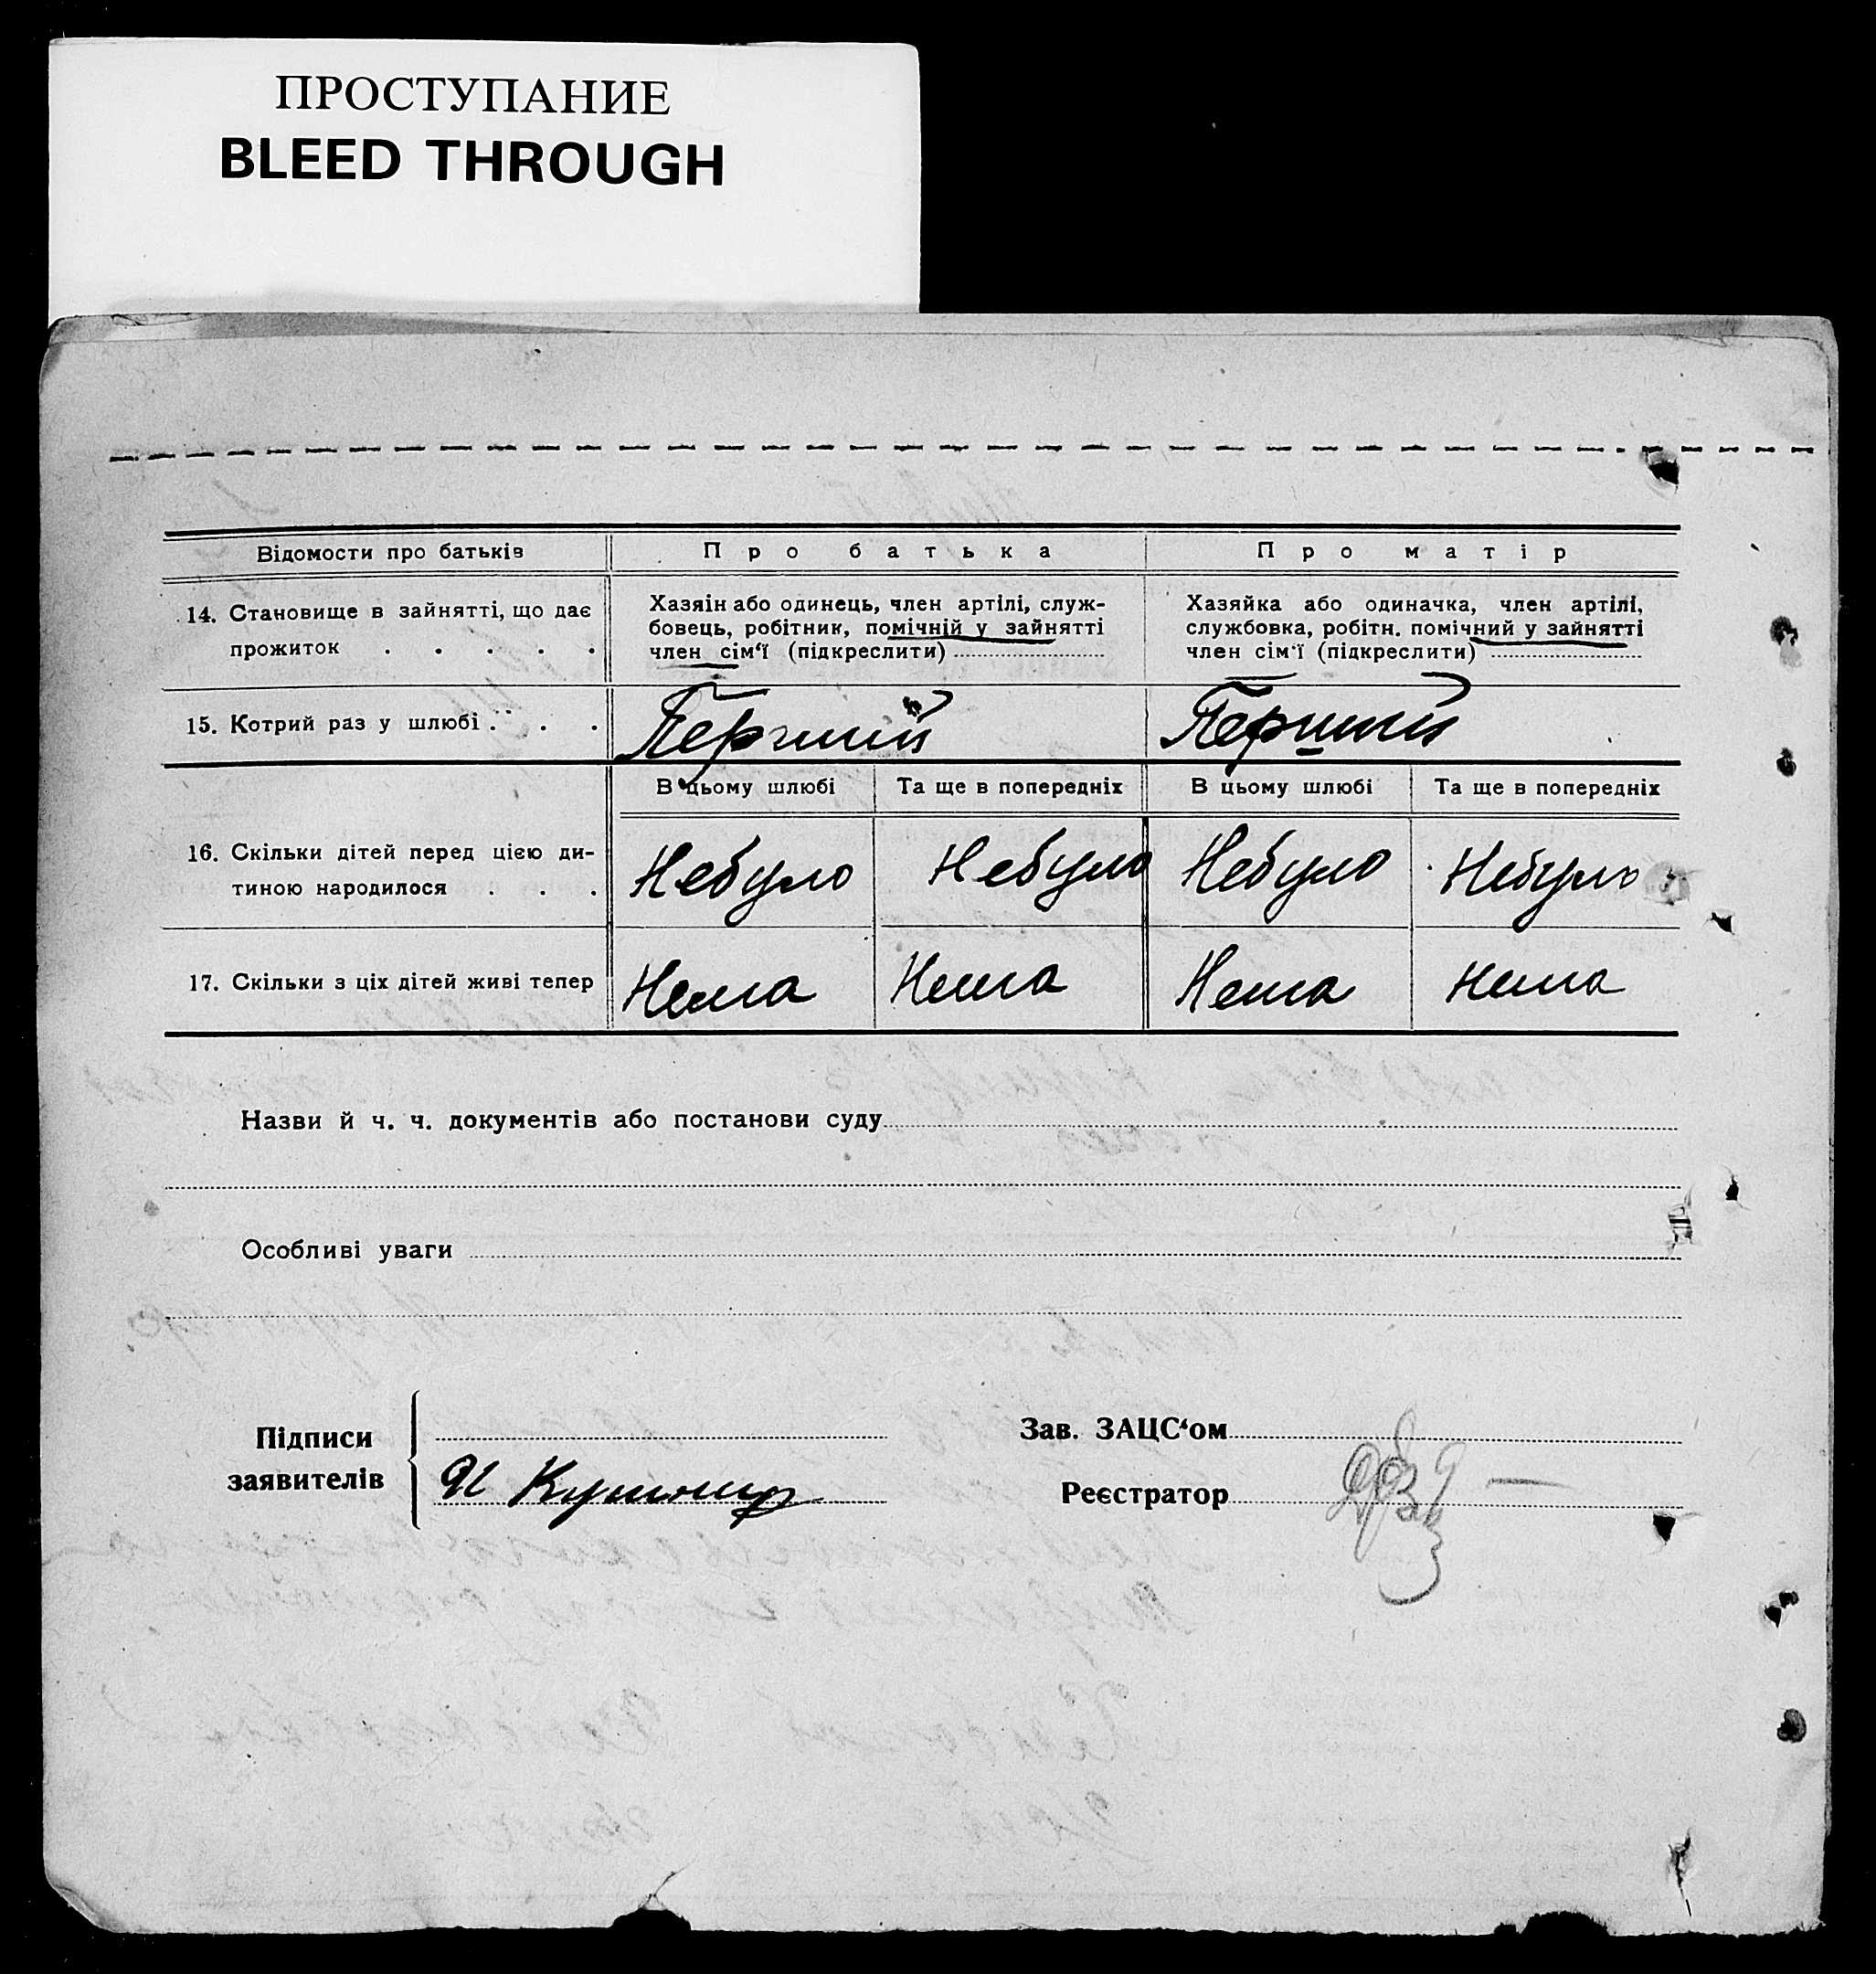 ПРОСТУПАНИЕ
BLEED THROUGH
Відомости про батьків
Про батька
Про матір
14. Становище в зайнятті, що дає
прожиток . . . . .
Хазяін або одинець, член артілі, служ-
бовець, робітник, помічній у зайнятті
член сім‘ї (підкреслити)
Хазяйка або одиначка, член артілі,
службовка, робітн. помічний у зайнятті
член сім‘ї (підкреслити)
15. Котрий раз у шлюбі . . .
Перший
Перший
В цьому шлюбі
Та ще в попередніх
В цьому шлюбі
Та ще в попередніх
16. Скільки дітей перед цією ди-
тиною народилося . . .
Небуло
Небуло
Небуло
Небуло
17. Скільки з ціх дітей живі тепер
Нема
Нема
Нема
Нема
Назви й ч. ч. документів або постанови суду
Особливі уваги
Підписи
заявителів
Кушнир
Зав. ЗАЦС‘ом
Реєстратор